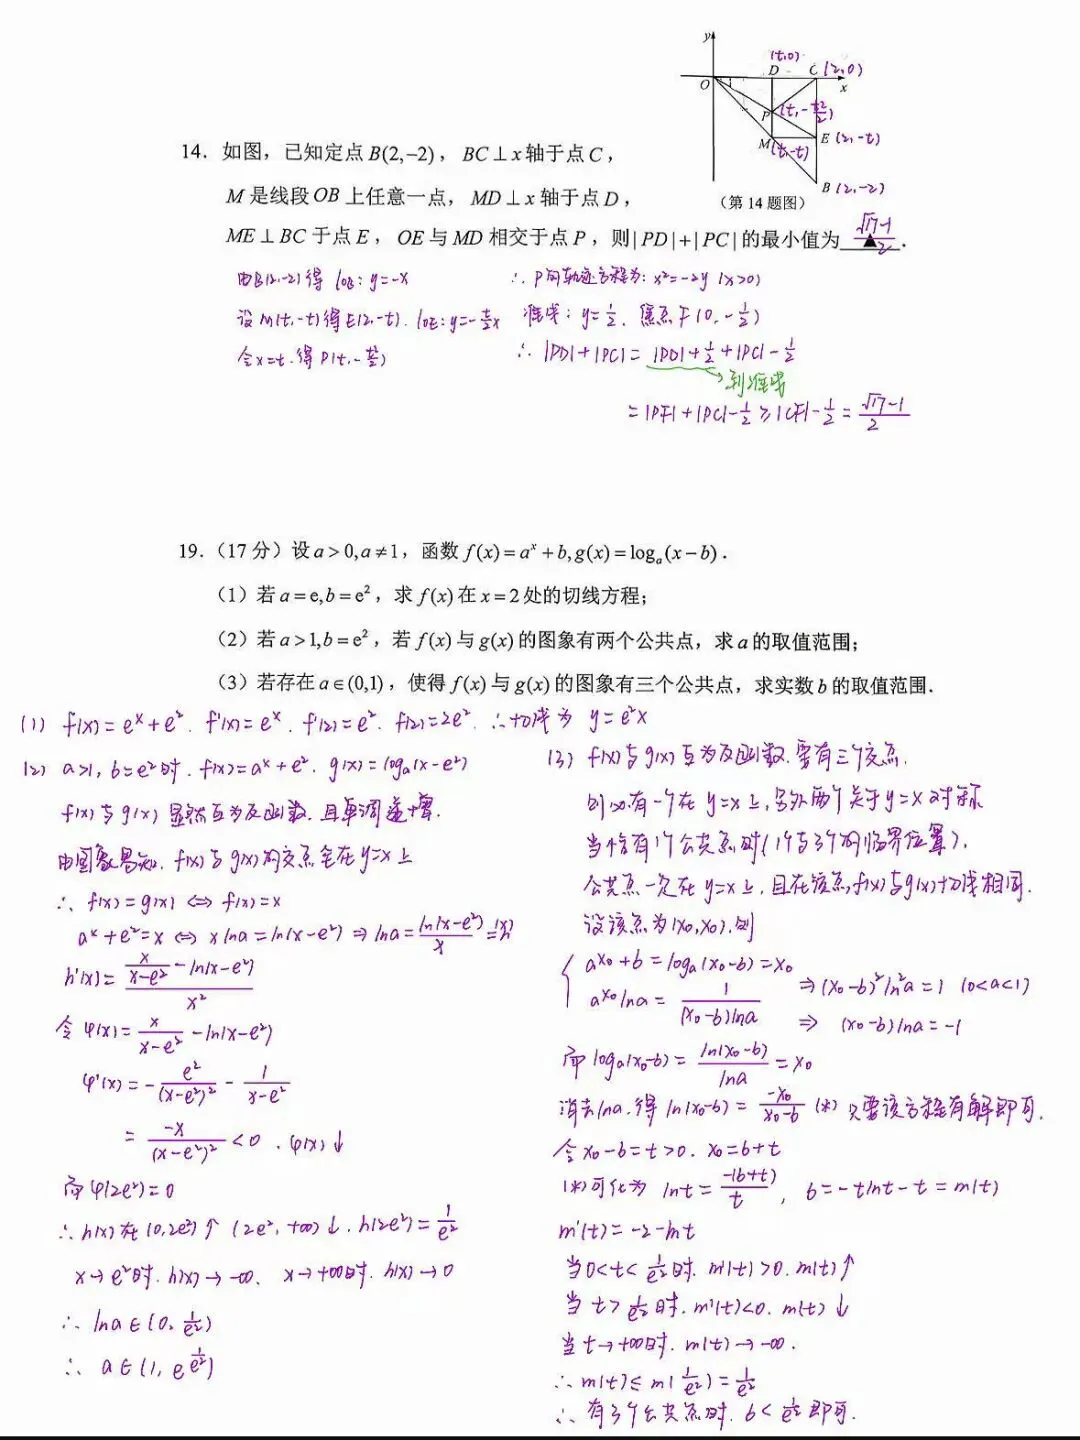 y
(t,0)
D
C (2,0)
O
x
P (t,-t²/2)
E (2,-t)
M (t,-t)
B (2,-2)
(第14题图)
14. 如图，已知定点B(2,−2)，BC⊥x轴于点C，
M是线段OB上任意一点，MD⊥x轴于点D，
ME⊥BC于点E，OE与MD相交于点P，则|PD|+|PC|的最小值为 (√17-1)/2 ▲ .
由B(2,-2)得 lOB: y=-x
设M(t,-t)得E(2,-t). lOE: y=-t/2 x
令x=t. 得P(t,-t²/2)
∴ P的轨迹方程为: x²=-2y (x>0)
准线: y=1/2. 焦点F(0,-1/2)
∴ |PD|+|PC|= |PD|+1/2+|PC|-1/2
到准线
=|PF|+|PC|-1/2≥|CF|-1/2=(√17-1)/2
19.（17分）设a>0,a≠1，函数f(x)=aˣ+b,g(x)=logₐ(x−b).
（1）若a=e,b=e²，求f(x)在x=2处的切线方程；
（2）若a>1,b=e²，若f(x)与g(x)的图象有两个公共点，求a的取值范围；
（3）若存在a∈(0,1)，使得f(x)与g(x)的图象有三个公共点，求实数b的取值范围.
(1) f(x)=eˣ+e². f'(x)=eˣ. f'(2)=e². f(2)=2e². ∴切线为 y=e²x
(2) a>1, b=e²时. f(x)=aˣ+e². g(x)=logₐ(x-e²)
f(x)与g(x)显然互为反函数. 且单调递增.
由图象易知. f(x)与g(x)的交点全在y=x上
∴ f(x)=g(x) ⇔ f(x)=x
aˣ+e²=x ⇔ xlna=ln(x-e²) ⇒ lna=ln(x-e²)/x=h(x)
h'(x)=(x/(x-e²)-ln(x-e²))/x²
令φ(x)=x/(x-e²)-ln(x-e²)
φ'(x)=-e²/(x-e²)²-1/(x-e²)
=-x/(x-e²)²<0. φ(x)↓
而φ(2e²)=0
∴h(x)在(0,2e²)↑ (2e²,+∞)↓. h(2e²)=1/e²
x→e²时. h(x)→-∞. x→+∞时. h(x)→0
∴ lna∈(0,1/e²)
∴ a∈(1,e^(1/e²))
(3) f(x)与g(x)互为反函数. 要有三个交点.
则必有一个在y=x上, 另外两个关于y=x对称
当恰有1个公共点时(1个与3个的临界位置).
公共点一定在y=x上, 且在该点, f(x)与g(x)切线相同.
设该点为(x₀,x₀). 则
{ aˣ⁰+b=logₐ(x₀-b)=x₀
aˣ⁰lna=1/((x₀-b)lna) ⇒(x₀-b)²ln²a=1 (0<a<1)
⇒ (x₀-b)lna=-1
而logₐ(x₀-b)=ln(x₀-b)/lna=x₀
消去lna. 得ln(x₀-b)=-x₀/(x₀-b) (*) 只要该方程有解即可.
令x₀-b=t>0. x₀=b+t
(*)可化为 lnt=-(b+t)/t, b=-tlnt-t=m(t)
m'(t)=-2-lnt
当0<t<1/e²时. m'(t)>0. m(t)↑
当t>1/e²时. m'(t)<0. m(t)↓
当t→+∞时. m(t)→-∞.
∴m(t)≤m(1/e²)=1/e²
∴有3个公共点时. b<1/e²即可.